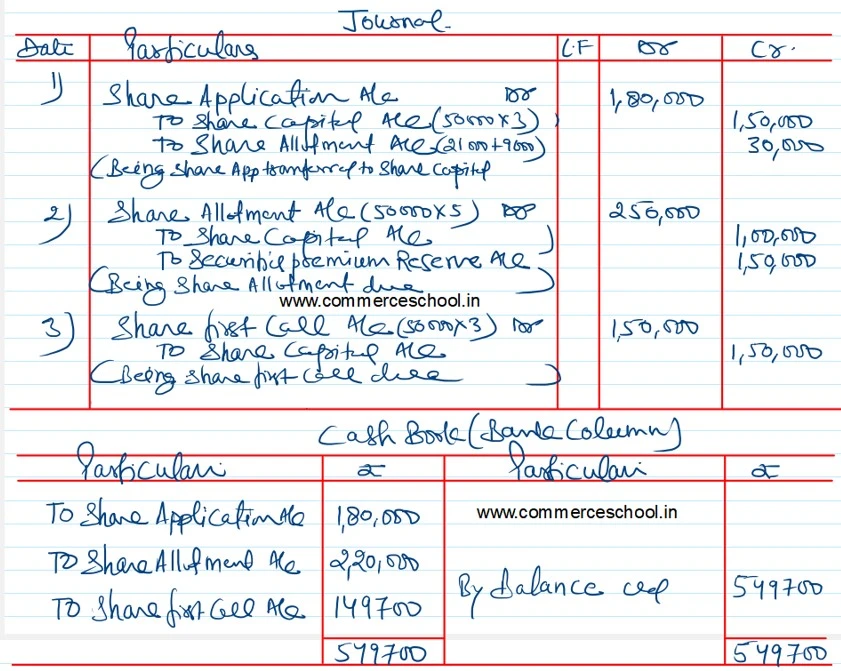 Journal
Date Particulars L.F Dr Cr.
1) Share Application A/c Dr 1,80,000
To Share Capital A/c (50000×3) 1,50,000
To Share Allotment A/c (21000+9000) 30,000
(Being share App transferred to Share Capital
2) Share Allotment A/c (50000×5) Dr 250,000
To Share Capital A/c 1,00,000
To Securities premium Reserve A/c 1,50,000
(Being Share Allotment due)
www.commerceschool.in
3) Share first Call A/c (50000×3) Dr 1,50,000
To Share Capital A/c 1,50,000
(Being share first call due)
Cash Book (Bank Column)
Particulars ₹ Particulars ₹
To Share Application A/c 1,80,000 www.commerceschool.in
To Share Allotment A/c 2,20,000
By Balance c/d 549700
To Share first Call A/c 149700
549700 549700